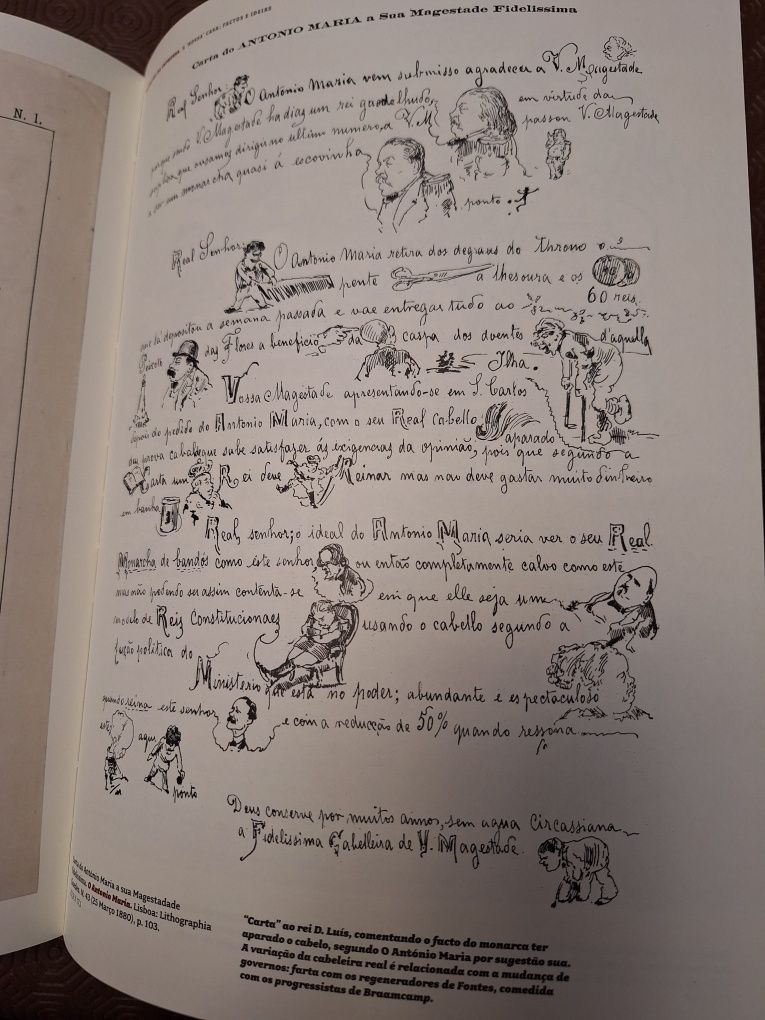 N. I.
CASA: FACTOS E IDEIAS
Carta do ANTONIO MARIA a Sua Magestade Fidelissima
Real Senhor: O António Maria vem submisso agradecer a V. Magestade
em virtude da
porque sendo V. Magestade ha dias um rei guedelhudo,
passou V. Magestade
supplica que ousamos dirigir no ultimo numero, a V. M
a ser um monarcha quasi á escovinha
ponto.
Real Senhor: O António Maria retira dos degraus do throno o
pente a thesoura e os
60 reis.
que lá depositou a semana passada e vae entregar tudo ao
das Flores a beneficio da caspa dos doentes d'aquella
Ilha.
Vossa Magestade apresentando-se em S. Carlos
depois do pedido do Antonio Maria, com o seu Real Cabello
aparado
deu prova cabal que sube satisfazer ás exigencias da opinião, pois que segundo a
Carta um Rei deve Reinar mas nao deve gastar muito dinheiro
em banha
Real, senhor; o ideal do Antonio Maria seria ver o seu Real
Monarcha de bandós como este senhor ou então completamente calvo como este
mas não podendo ser assim contenta-se em que elle seja um
modelo de Reis Constitucionaes usando o cabello segundo a
feição politica do
Ministerio que está no poder; abundante e espectaculoso
quando reina este senhor e com a reducção de 50% quando ressona
este
aqui
ponto
Deus conserve por muitos annos, sem agua Circassiana
a Fidelissima Cabelleira de V. Magestade.
Carta do António Maria a sua Magestadade
Fidelissima. O Antonio Maria. Lisboa: Lithographia
Guedes, N. 43 (25 Março 1880), p. 103.
"Carta" ao rei D. Luís, comentando o facto do monarca ter
aparado o cabelo, segundo O António Maria por sugestão sua.
A variação da cabeleira real é relacionada com a mudança de
governos: farta com os regeneradores de Fontes, comedida
com os progressistas de Braamcamp.